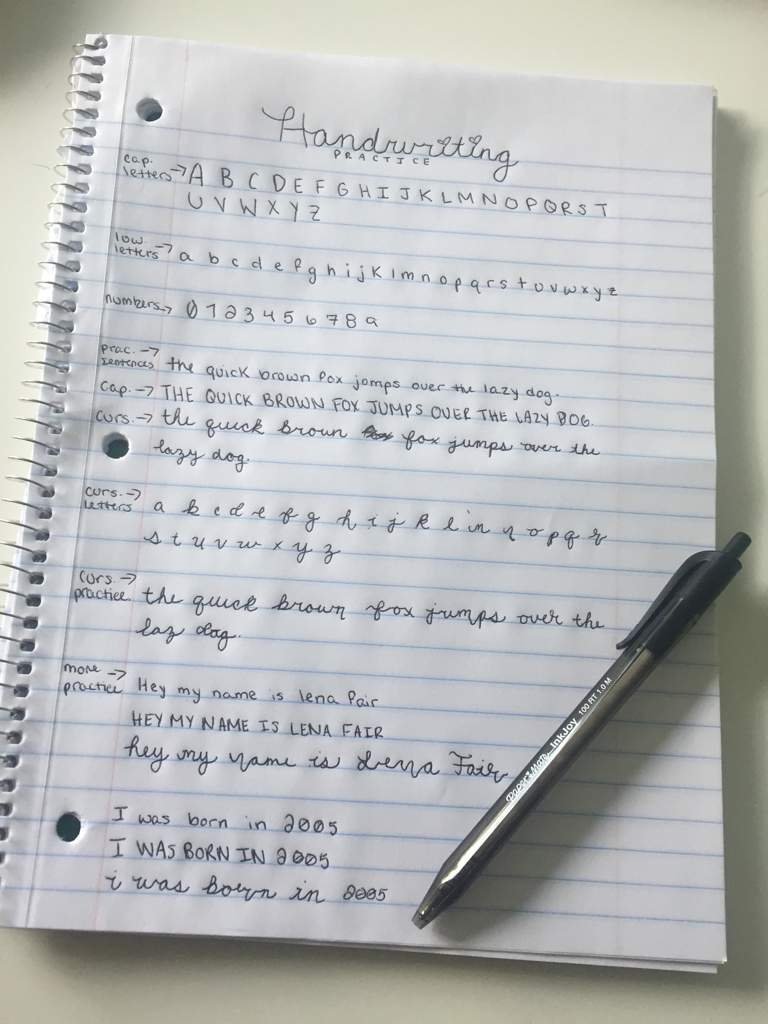 Handwriting
PRACTICE
cap. letters → A B C D E F G H I J K L M N O P Q R S T
U V W X Y Z
low letters → a b c d e f g h i j k l m n o p q r s t u v w x y z
numbers → 0 1 2 3 4 5 6 7 8 9
prac. sentences → the quick brown fox jumps over the lazy dog.
cap. → THE QUICK BROWN FOX JUMPS OVER THE LAZY DOG.
curs. → the quick brown fox fox jumps over the
lazy dog.
curs. letters → a b c d e f g h i j k l m n o p q r
s t u v w x y z
curs. practice → the quick brown fox jumps over the
laz dog.
more practice → Hey my name is lena fair
HEY MY NAME IS LENA FAIR
hey my name is Lena Fair
I was born in 2005
I WAS BORN IN 2005
i was born in 2005
PaperMate InkJoy 100 RT 1.0 M